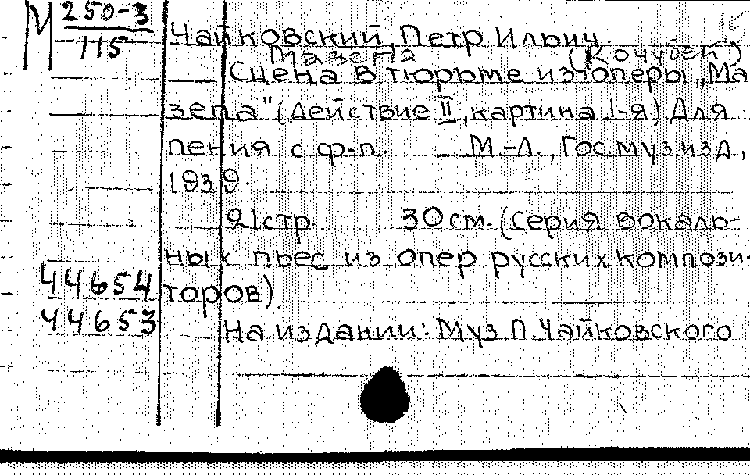 М 250-3
115
Чайковский, Петр Ильич.
Мазепа (Кочубей)
Сцена в тюрьме из оперы „Ма
зепа" (Действие II, картина 1-я) Для
пения с ф-п. М.-Л., Госмузизд,
1939.
21 стр. 30 см. (Серия вокаль-
ных пьес из опер русских компози-
торов).
44654
44653
На издании: Муз. П. Чайковского